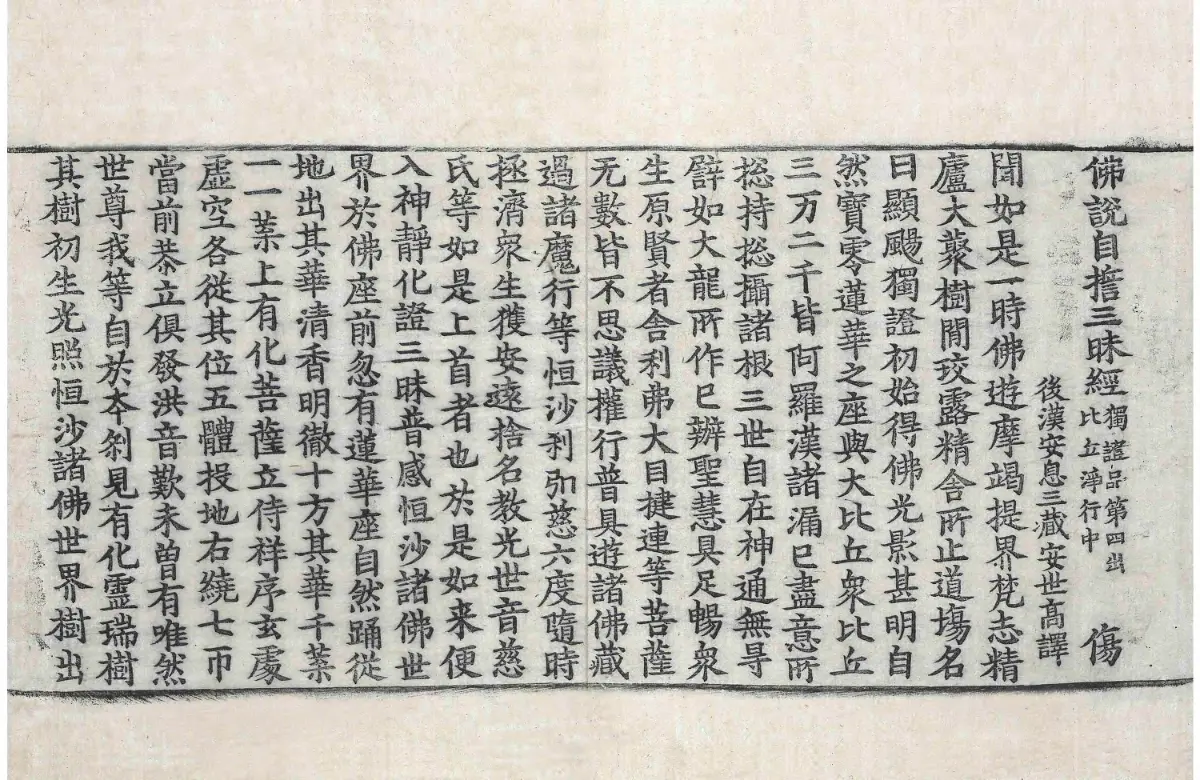 佛說自擔三昧經 獨證品第四出 傷
比丘淨行中
後漢安息三藏安世高譯
聞如是一時佛遊摩竭提界梵志精
廬大藂樹閒珓露精舍所止道場名
曰顯颺獨證初始得佛光影甚明自
然寶零蓮華之座與大比丘衆比丘
三万二千皆阿羅漢諸漏已盡意所
捴持捴攝諸根三世自在神通無㝵
譬如大龍所作已辦聖慧具足暢衆
生原賢者舍利弗大目揵連等菩薩
无數皆不思議權行普具遊諸佛藏
過諸魔行等恒沙刹弘慈六度隨時
拯濟衆生獲安遠捨名教光世音慈
氏等如是上首者也於是如来便
入神靜化證三昧普感恒沙諸佛世
界於佛座前忽有蓮華座自然踊從
地出其華清香明徹十方其華千葉
一一葉上有化菩薩立侍祥序玄處
虛空各從其位五體投地右繞七帀
當前恭立俱發洪音歎未曾有唯然
世尊我等自於夲刹見有化靈瑞樹
其樹初生光照恒沙諸佛世界樹出